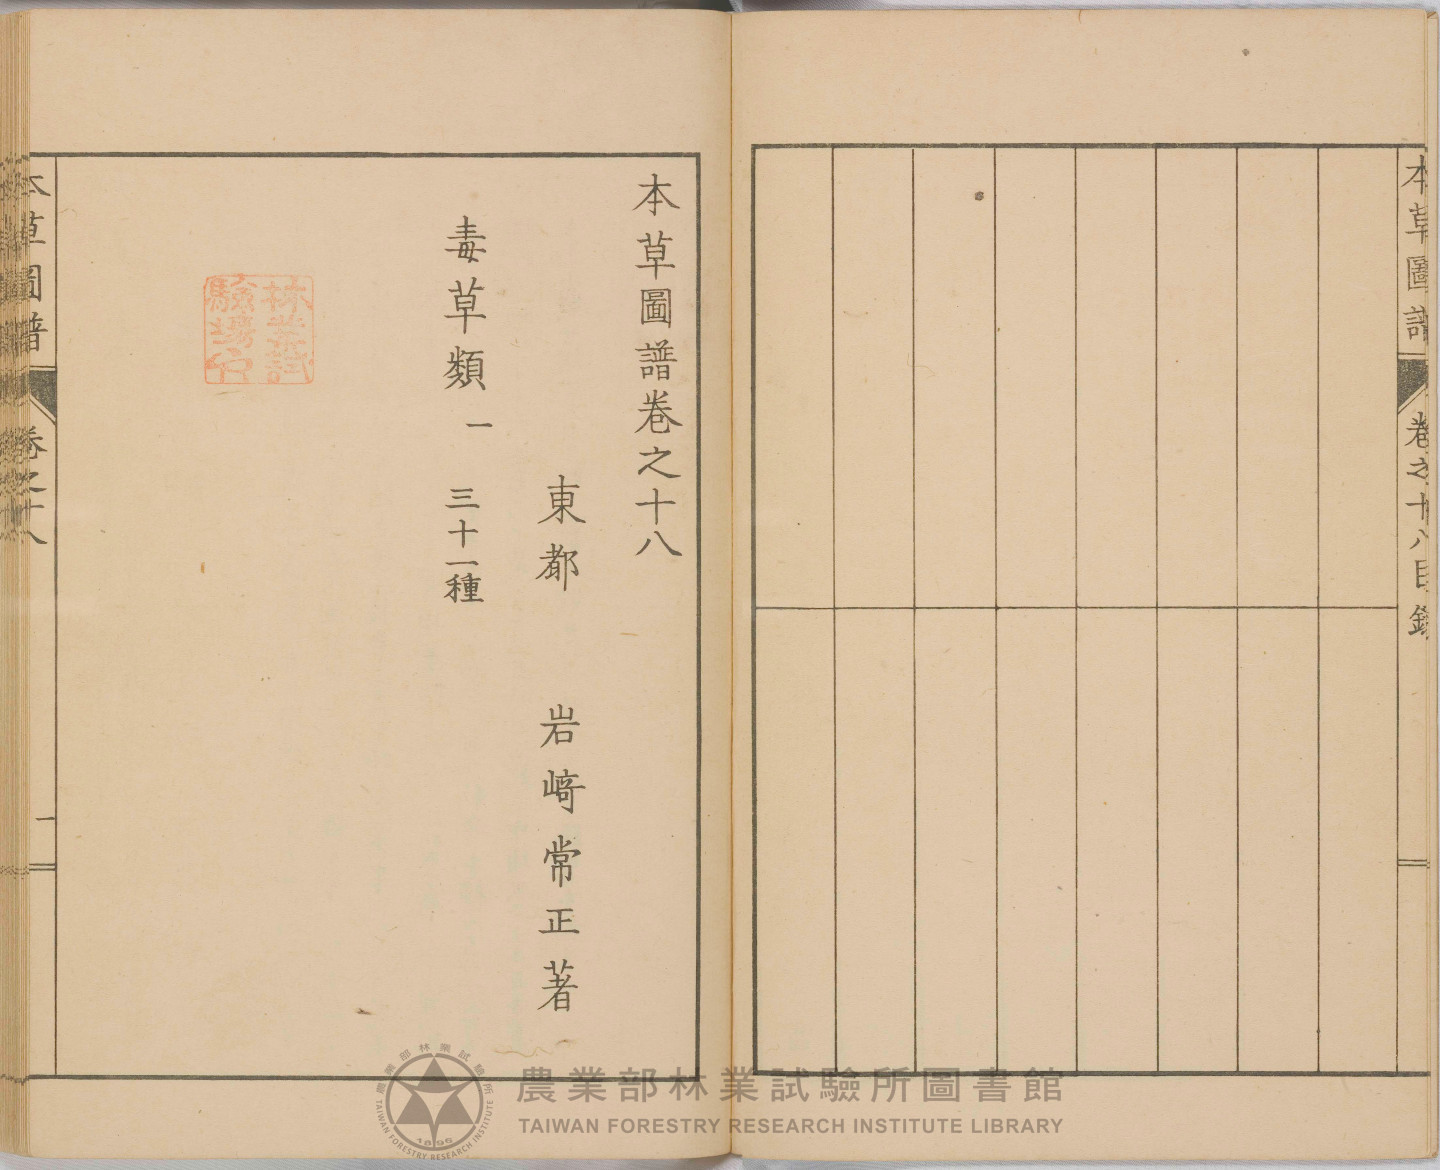 本草圖譜
卷之十八目錄
本草圖譜卷之十八
東都 岩﨑常正著
毒草類一 三十一種
林業試
驗場印
本草圖譜
卷之十八
一
農業部林業試驗所圖書館
TAIWAN FORESTRY RESEARCH INSTITUTE LIBRARY
農業部林業試驗所
TAIWAN FORESTRY RESEARCH INSTITUTE
1896